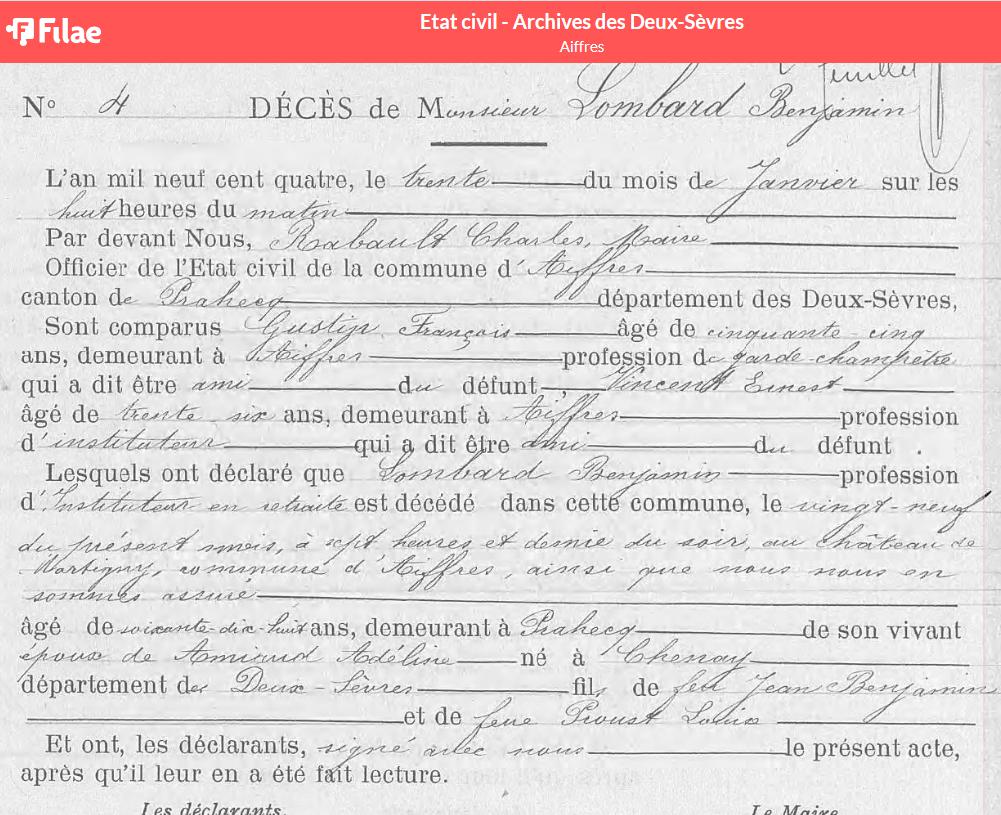 Filae
Etat civil - Archives des Deux-Sèvres
Aiffres
feuillet
N° 4 DÉCÈS de Monsieur Lombard Benjamin
L'an mil neuf cent quatre, le trente du mois de Janvier sur les
huit heures du matin
Par devant Nous, Rabault Charles, Maire
Officier de l'Etat civil de la commune d'Aiffres
canton de Prahecq département des Deux-Sèvres,
Sont comparus Gustin François âgé de cinquante-cinq
ans, demeurant à Aiffres profession de garde-champêtre
qui a dit être ami du défunt, Vincent Ernest
âgé de trente six ans, demeurant à Aiffres profession
d'instituteur qui a dit être ami du défunt.
Lesquels ont déclaré que Lombard Benjamin profession
d'Instituteur en retraite est décédé dans cette commune, le vingt-neuf
du présent mois, à sept heures et demie du soir, au château de
Martigny, commune d'Aiffres, ainsi que nous nous en
sommes assuré
âgé de soixante-dix-huit ans, demeurant à Prahecq de son vivant
époux de Amiaud Adéline né à Chenay
département des Deux-Sèvres fils de feu Jean Benjamin
et de feue Proust Louise
Et ont, les déclarants, signé avec nous le présent acte,
après qu'il leur en a été fait lecture.
Les déclarants, Le Maire